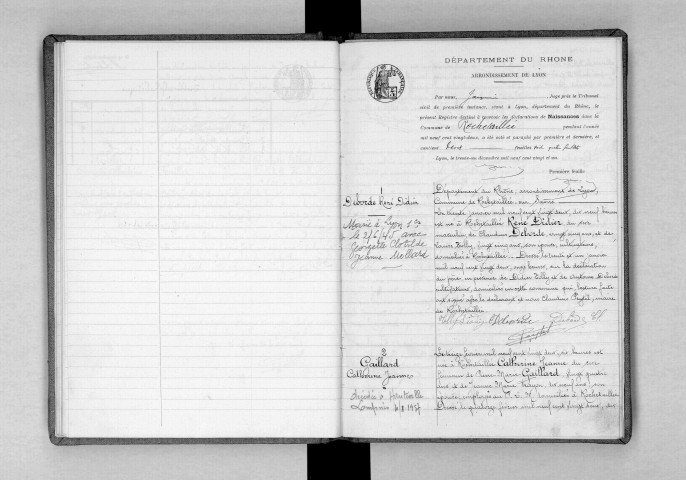 DÉPARTEMENT DU RHONE
ARRONDISSEMENT DE LYON
Par nous, Juge près le Tribunal
civil de première instance, séant à Lyon, département du Rhône, le
présent Registre destiné à recevoir les déclarations de Naissances dans la
Commune de Rochetaillée pendant l'année
mil neuf cent vingt-deux, a été coté et paraphé par première et dernière, et
contient feuillets
Lyon, le décembre mil neuf cent vingt et un.
Première feuille
1
Deborde René Didier
Marié à Lyon
le 2/6/45 avec
Georgette Clotilde
Jeanne Mollard
Département du Rhône, arrondissement de Lyon,
Commune de Rochetaillée sur Saône
Le trente janvier mil neuf cent vingt deux, dix neuf heures
est né à Rochetaillée René Didier du sexe
masculin de Claudius Deborde, vingt cinq ans, et de
Tolly, vingt cinq ans, son épouse, cultivateurs,
domiciliés à Rochetaillée. Dressé le trente et un janvier
mil neuf cent vingt deux, onze heures, sur la déclaration
du père, en présence de Didier Tolly et de Antoine
cultivateurs, domiciliés en cette commune qui, lecture faite
ont signé avec le déclarant et nous Claudius maire
de Rochetaillée.
2
Gaillard
Catherine Jeanne
Décédée à Hauteville
Lompnes 4/8 1957
Le treize février mil neuf cent vingt deux, dix heures est
née à Rochetaillée Catherine Jeanne du sexe
féminin de Pierre Marie Gaillard, vingt quatre
ans, et de Jeanne Marie ans, son
épouse, employés au domiciliés à Rochetaillée.
Dressé le quatorze février mil neuf cent vingt deux, dix